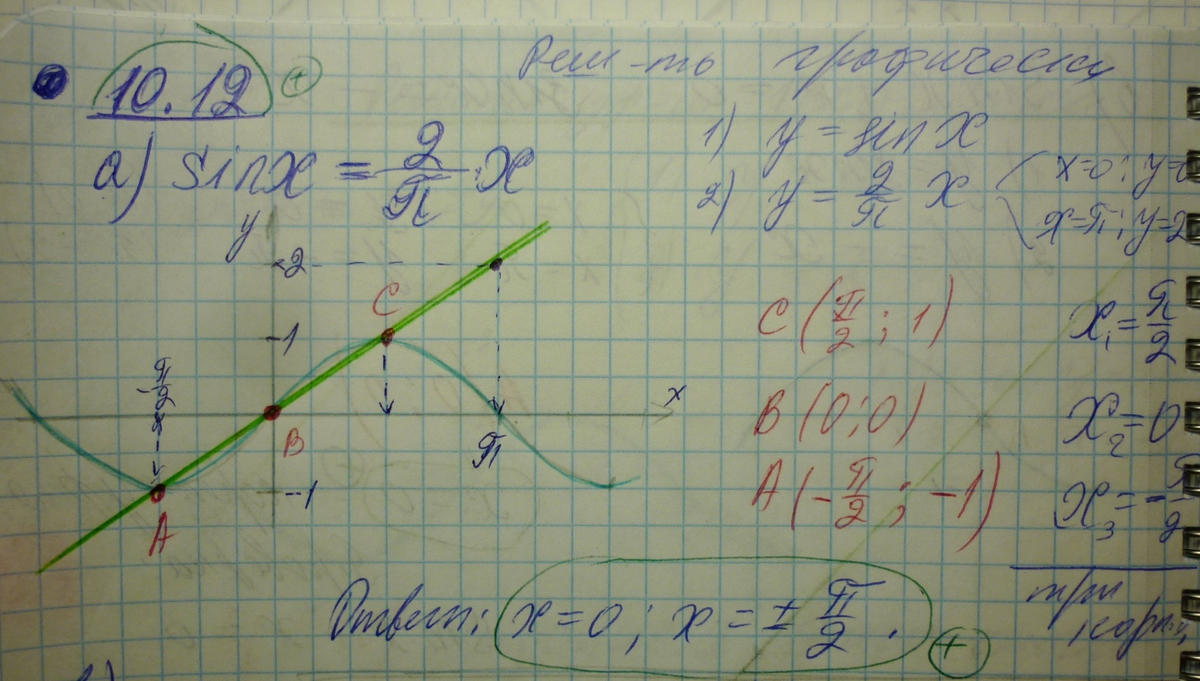 10.12 +
Реш-ть графически
а) sin x = 2/π · x
1) y = sin x
2) y = 2/π x
x=0; y=0
x=π; y=2
y
2
C
1
-π/2
x
B
π
-1
A
C (π/2 ; 1)
B (0;0)
A (-π/2 ; -1)
x₁ = π/2
x₂ = 0
x₃ = -π/2
три
Ответ: x=0; x = ± π/2 .
+